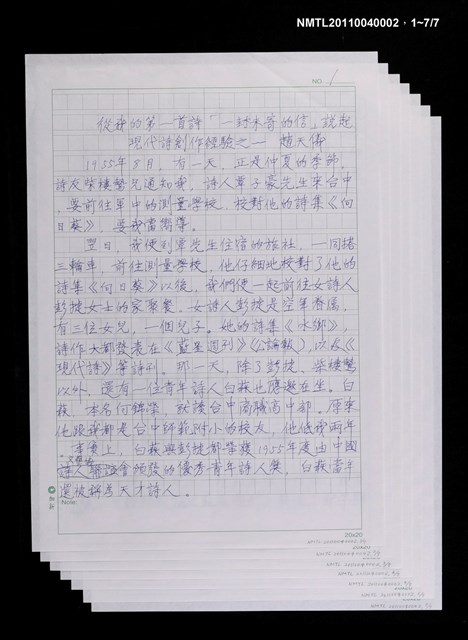 NMTL20110040002・1~7/7
NO. 1
從我的第一首詩「一封未寄的信」說起
現代詩創作經驗之一 趙天儀
1955年8月,有一天,正是仲夏的季節,
詩友柴棲鷙兄通知我,詩人覃子豪先生來台中
,要前往軍中的測量學校,校對他的詩集《向
日葵》,要我當嚮導。
翌日,我便到覃先生住宿的旅社,一同搭
三輪車,前往測量學校,他仔細地校對了他的
詩集《向日葵》以後,我們便一起前往女詩人
彭捷女士的家聚餐。女詩人彭捷是空軍眷屬,
有三位女兒,一個兒子。她的詩集《水鄉》,
詩作大都發表在《藍星週刊》(公論報),以及《
現代詩》等詩刊。那一天,除了彭捷、柴棲鷙
以外,還有一位青年詩人白萩也應邀在坐。白
萩,本名何錦榮,就讀台中商職高中部。原來
他跟我都是台中師範附小的校友,他低我兩年
。事實上,白萩與彭捷都榮獲1955年度由中國
詩人 會頒發的優秀青年詩人獎,白萩當年
還被稱為天才詩人。
Note:
20x20